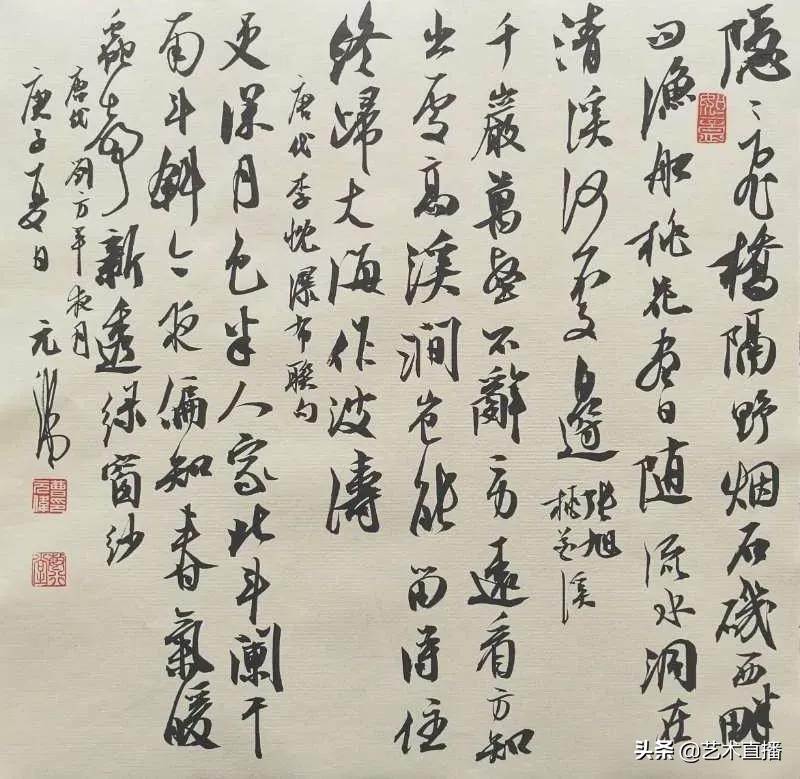 隱〻飛橋隔野烟石磯西畔
问漁船桃花尽日随流水洞在
清溪何处邊
张旭
桃花溪
千巖萬壑不辭劳遠看方知
出处高溪澗岂能留得住
终歸大海作波濤
唐代李忱瀑布联句
更深月色半人家北斗闌干
南斗斜今夜偏知春氣暖
蟲声新透绿窗纱
唐代刘方平夜月
庚子夏日 元
头条 @艺术直播